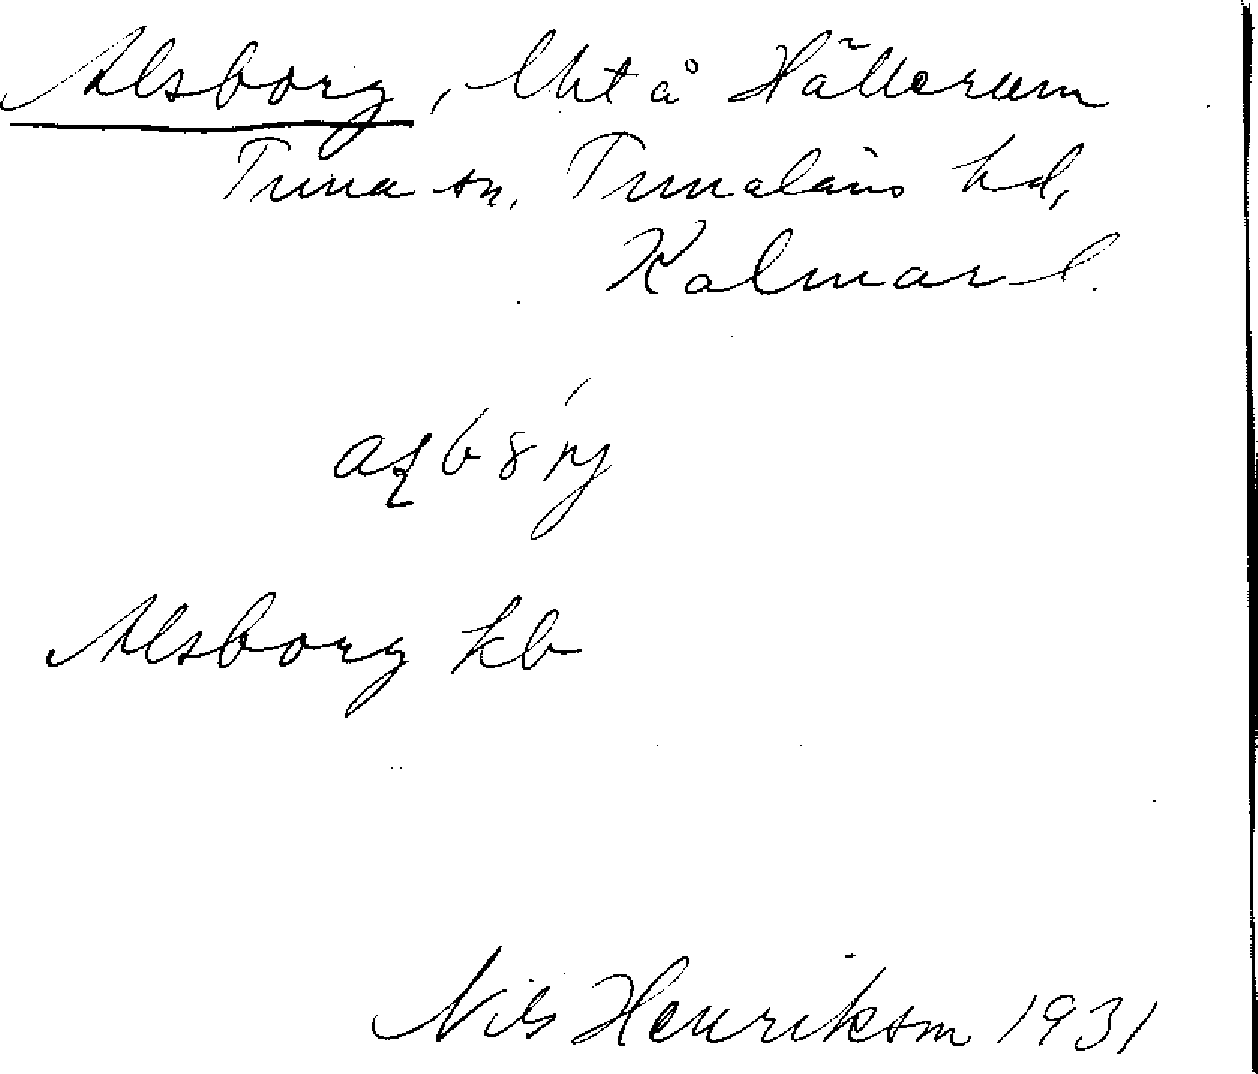 Alsborg, lht å Hälleram
Tuna sn, Tunaläns hd,
Kalmar l.
Alsborg kb
Nils Henrikson 1931